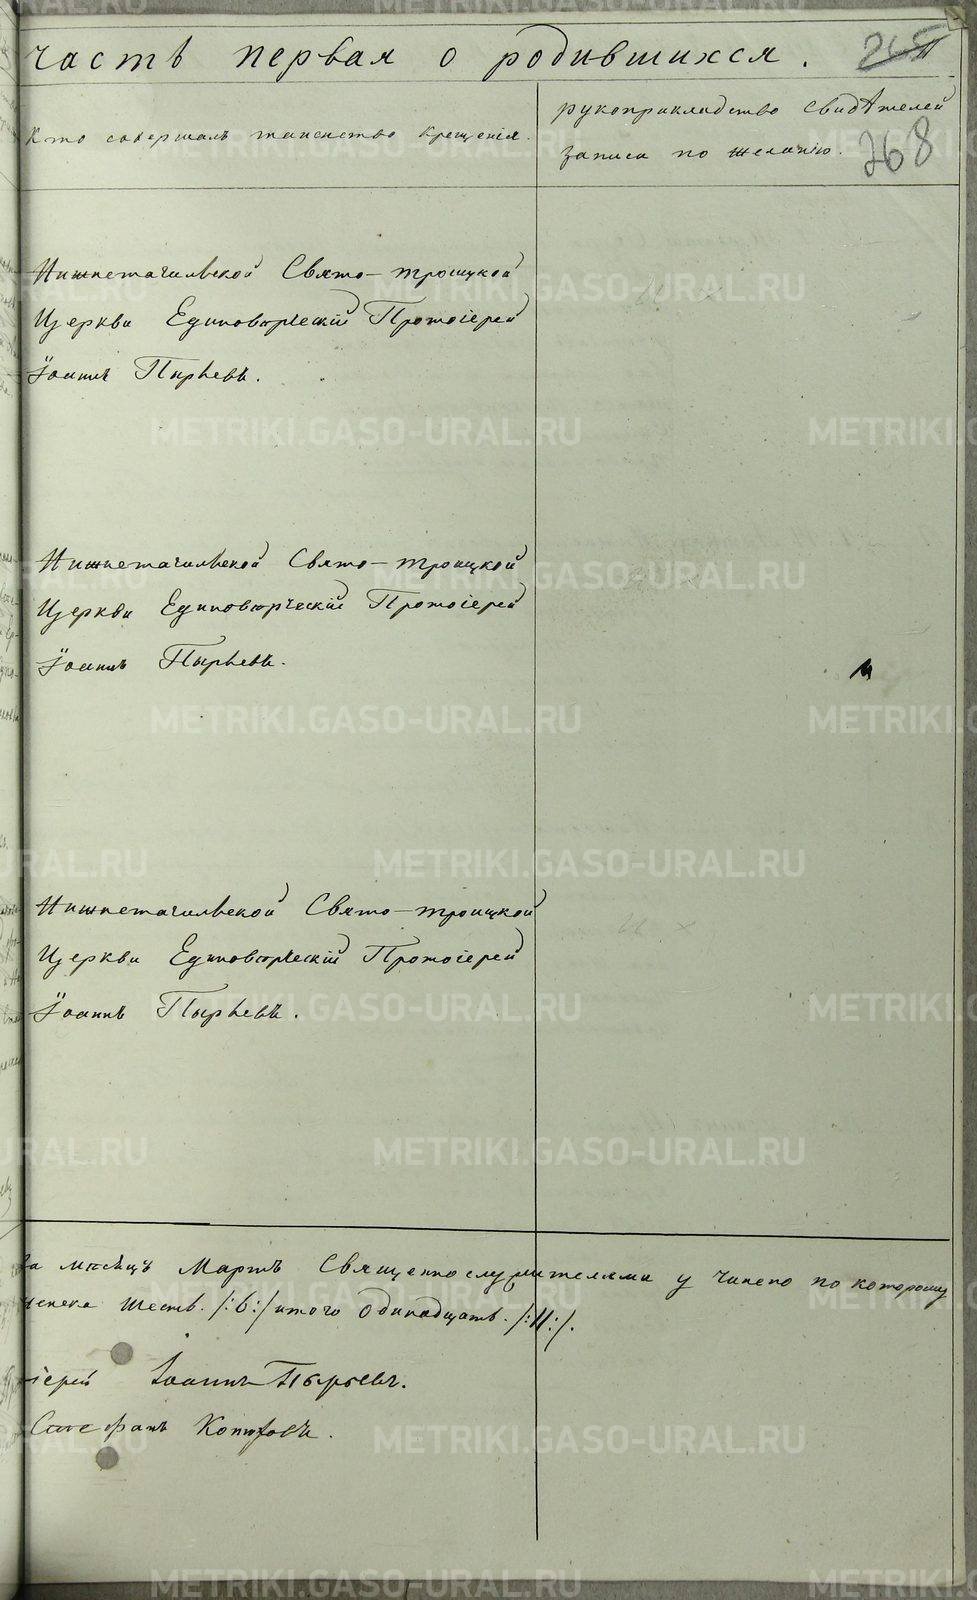 часть первая о родившихся.
268
Кто совершалъ таинство крещенія.
рукоприкладство свидѣтелей
записи по желанію.
Нижнетагильской Свято-троицкой
Церкви Единовѣрческій Протоіерей
Іоаннъ Пырьевъ.
Нижнетагильской Свято-троицкой
Церкви Единовѣрческій Протоіерей
Іоаннъ Пырьевъ.
Нижнетагильской Свято-троицкой
Церкви Единовѣрческій Протоіерей
Іоаннъ Пырьевъ.
За мѣсяцъ Мартъ Священнослужителями учинено по которому
женска шесть /:6:/ итого одинадцать. /:11:/.
іерей Іоаннъ Пырьевъ.
Стефанъ
METRIKI.GASO-URAL.RU